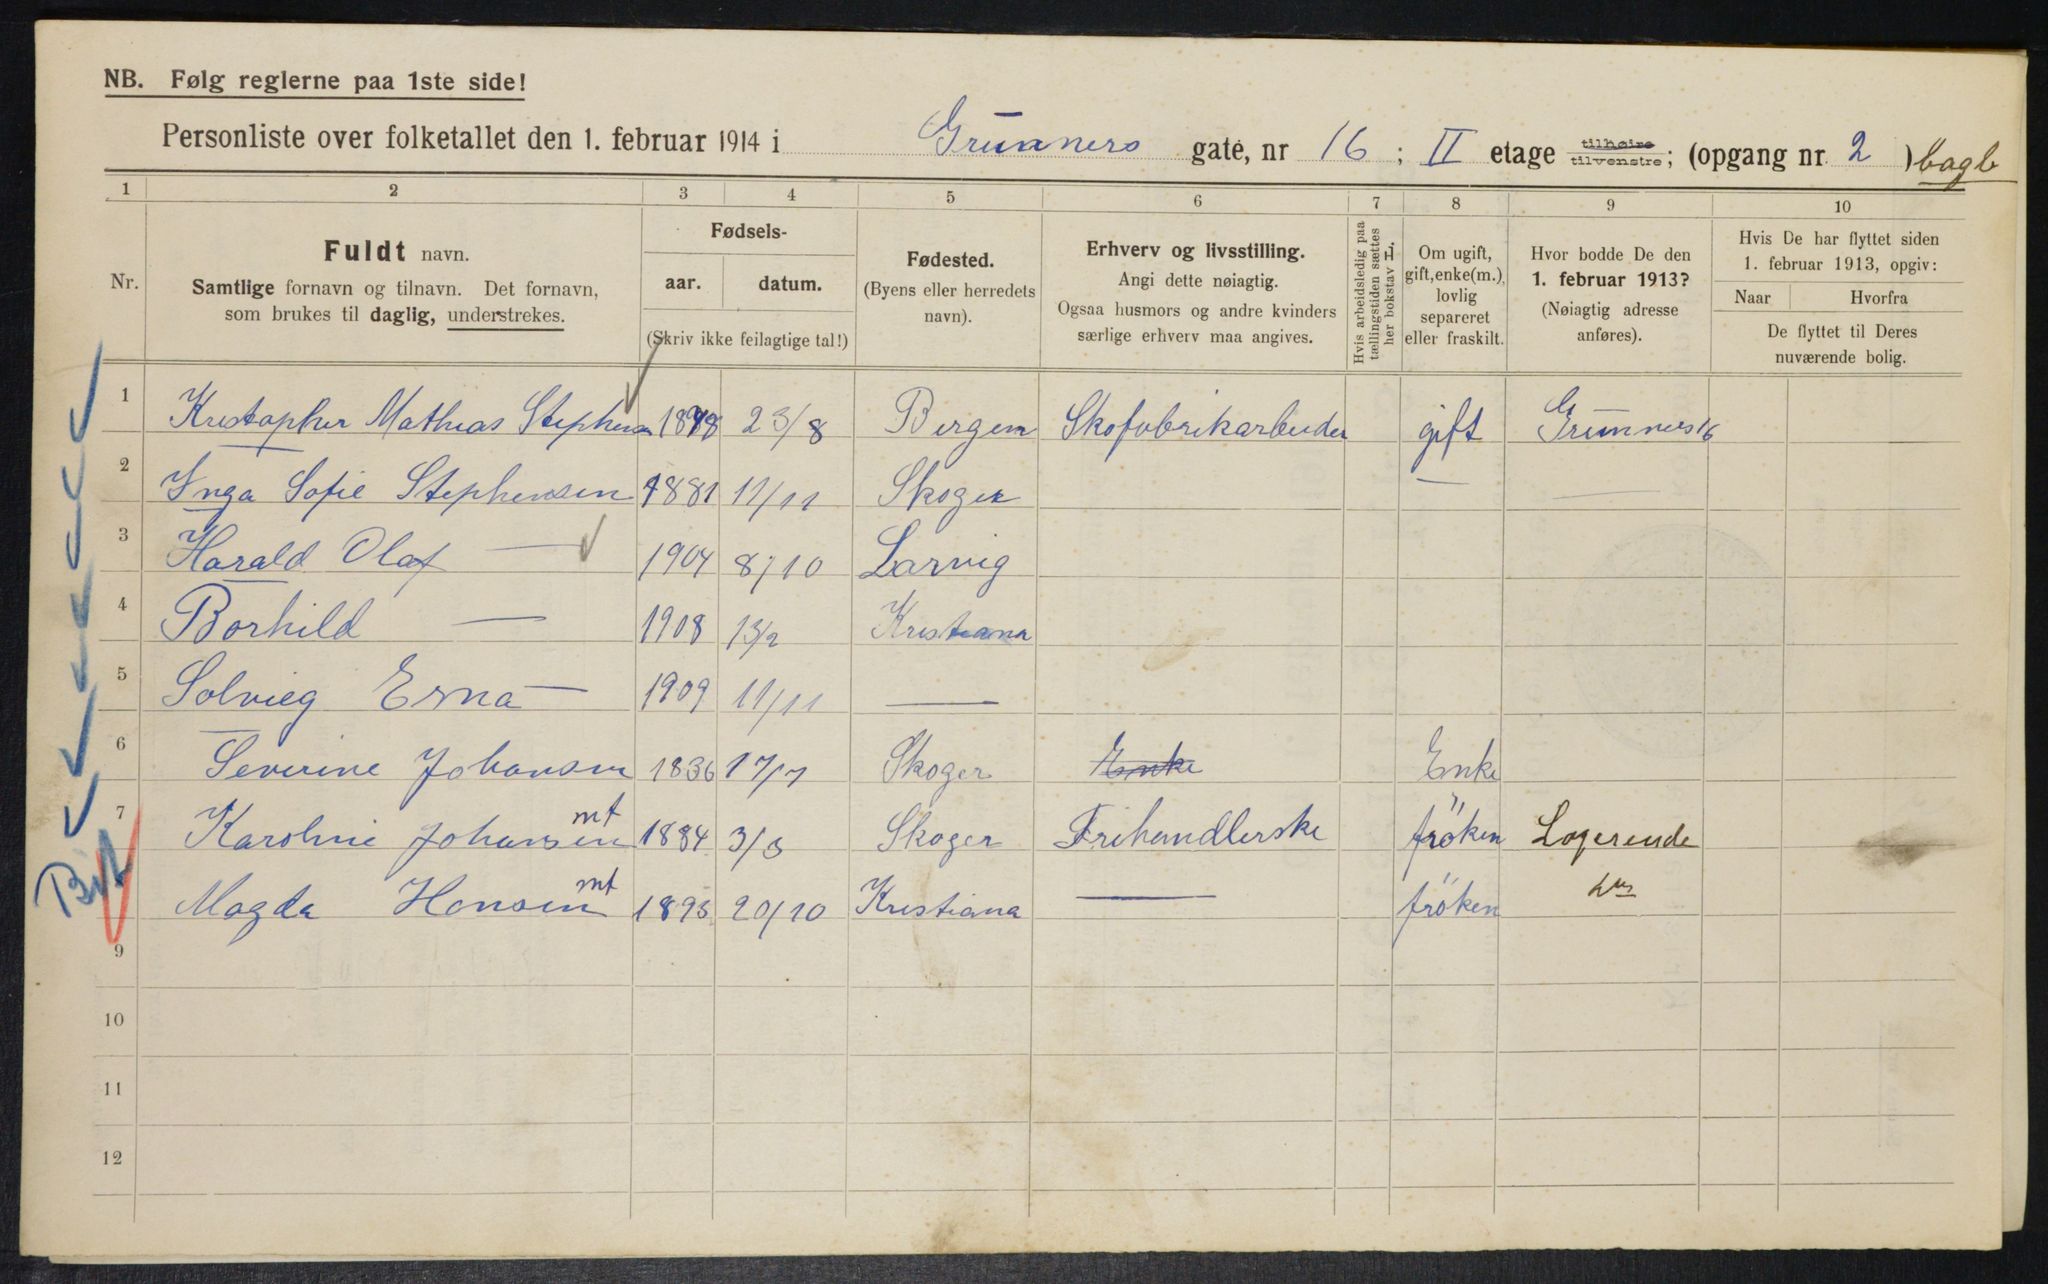 NB. Følg reglerne paa 1ste side!
Personliste over folketallet den 1. februar 1914 i Grünners gate, nr 16 ; II etage tilhøire tilvenstre; (opgang nr. 2 ) bagb
1 2 3 4 5 6 7 8 9 10
Nr.
Fuldt navn.
Samtlige fornavn og tilnavn. Det fornavn,
som brukes til daglig, understrekes.
Fødsels-
aar. datum.
(Skriv ikke feilagtige tal!)
Fødested.
(Byens eller herredets
navn).
Erhverv og livsstilling.
Angi dette nøiagtig.
Ogsaa husmors og andre kvinders
særlige erhverv maa angives.
Hvis arbeidsledig paa
tællingstiden sættes
her bokstav L.
Om ugift,
gift, enke(m.),
lovlig
separeret
eller fraskilt.
Hvor bodde De den
1. februar 1913?
(Nøiagtig adresse
anføres).
Hvis De har flyttet siden
1. februar 1913, opgiv:
Naar Hvorfra
De flyttet til Deres
nuværende bolig.
1 Kristopher Mathias Stephensen 23/8 Bergen Skofabrikarbeider gift Grünners 16
2 Inga Sofie Stephensen 1881 11/11 Skoger — —
3 Harald Olaf — 1904 8/10 Larvig
4 Borhild — 1908 13/2 Kristiana
5 Solvieg Erna — 1909 11/11 —
6 Severine Johansen 1836 17/7 Skoger Enke Enke
7 Karoline Johansen mt 1884 3/3 Skoger Frihandlerske fröken Logerende
Magda Hansen mt 1893 20/10 Kristiana — fröken
9
10
11
12